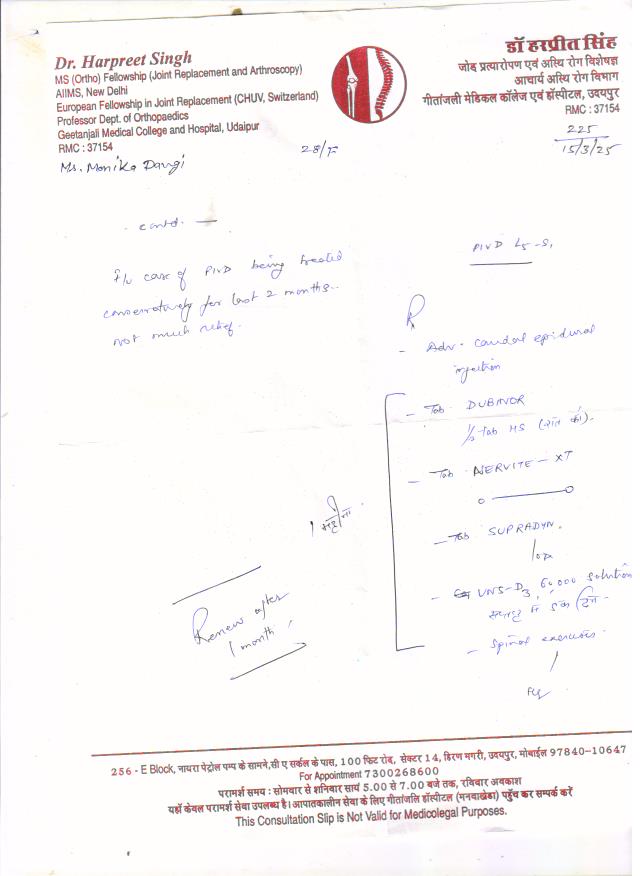 Dr. Harpreet Singh
MS (Ortho) Fellowship (Joint Replacement and Arthroscopy)
AIIMS, New Delhi
European Fellowship in Joint Replacement (CHUV, Switzerland)
Professor Dept. of Orthopaedics
Geetanjali Medical College and Hospital, Udaipur
RMC : 37154
डॉ हरप्रीत सिंह
जोड़ प्रत्यारोपण एवं अस्थि रोग विशेषज्ञ
आचार्य अस्थि रोग विभाग
गीतांजली मेडिकल कॉलेज एवं हॉस्पीटल, उदयपुर
RMC : 37154
225
15/3/25
Ms. Monika Dangi
28/F
contd.
f/u case of PIVD being treated
conservatively for last 2 months..
not much relief.
PIVD L5-S1
R
- Adv. caudal epidural
injection
- Tab DUBINOR
1/2 tab HS (रात को).
- Tab NERVITE - XT
- Tab SUPRADYN.
1 OD
- UNS-D3 60,000 solution
सप्ताह में एक दिन -
- Spinal exercises.
1 महीना
Renew after
1 month
256 - E Block, नायरा पेट्रोल पम्प के सामने,सी ए सर्कल के पास, 100 फिट रोड, सेक्टर 14, हिरण मगरी, उदयपुर, मोबाईल 97840-10647
For Appointment 7300268600
परामर्श समय : सोमवार से शनिवार सायं 5.00 से 7.00 बजे तक, रविवार अवकाश
यहाँ केवल परामर्श सेवा उपलब्ध है। आपातकालीन सेवा के लिए गीतांजलि हॉस्पीटल (मनवाखेडा) पहुँच कर सम्पर्क करें
This Consultation Slip is Not Valid for Medicolegal Purposes.